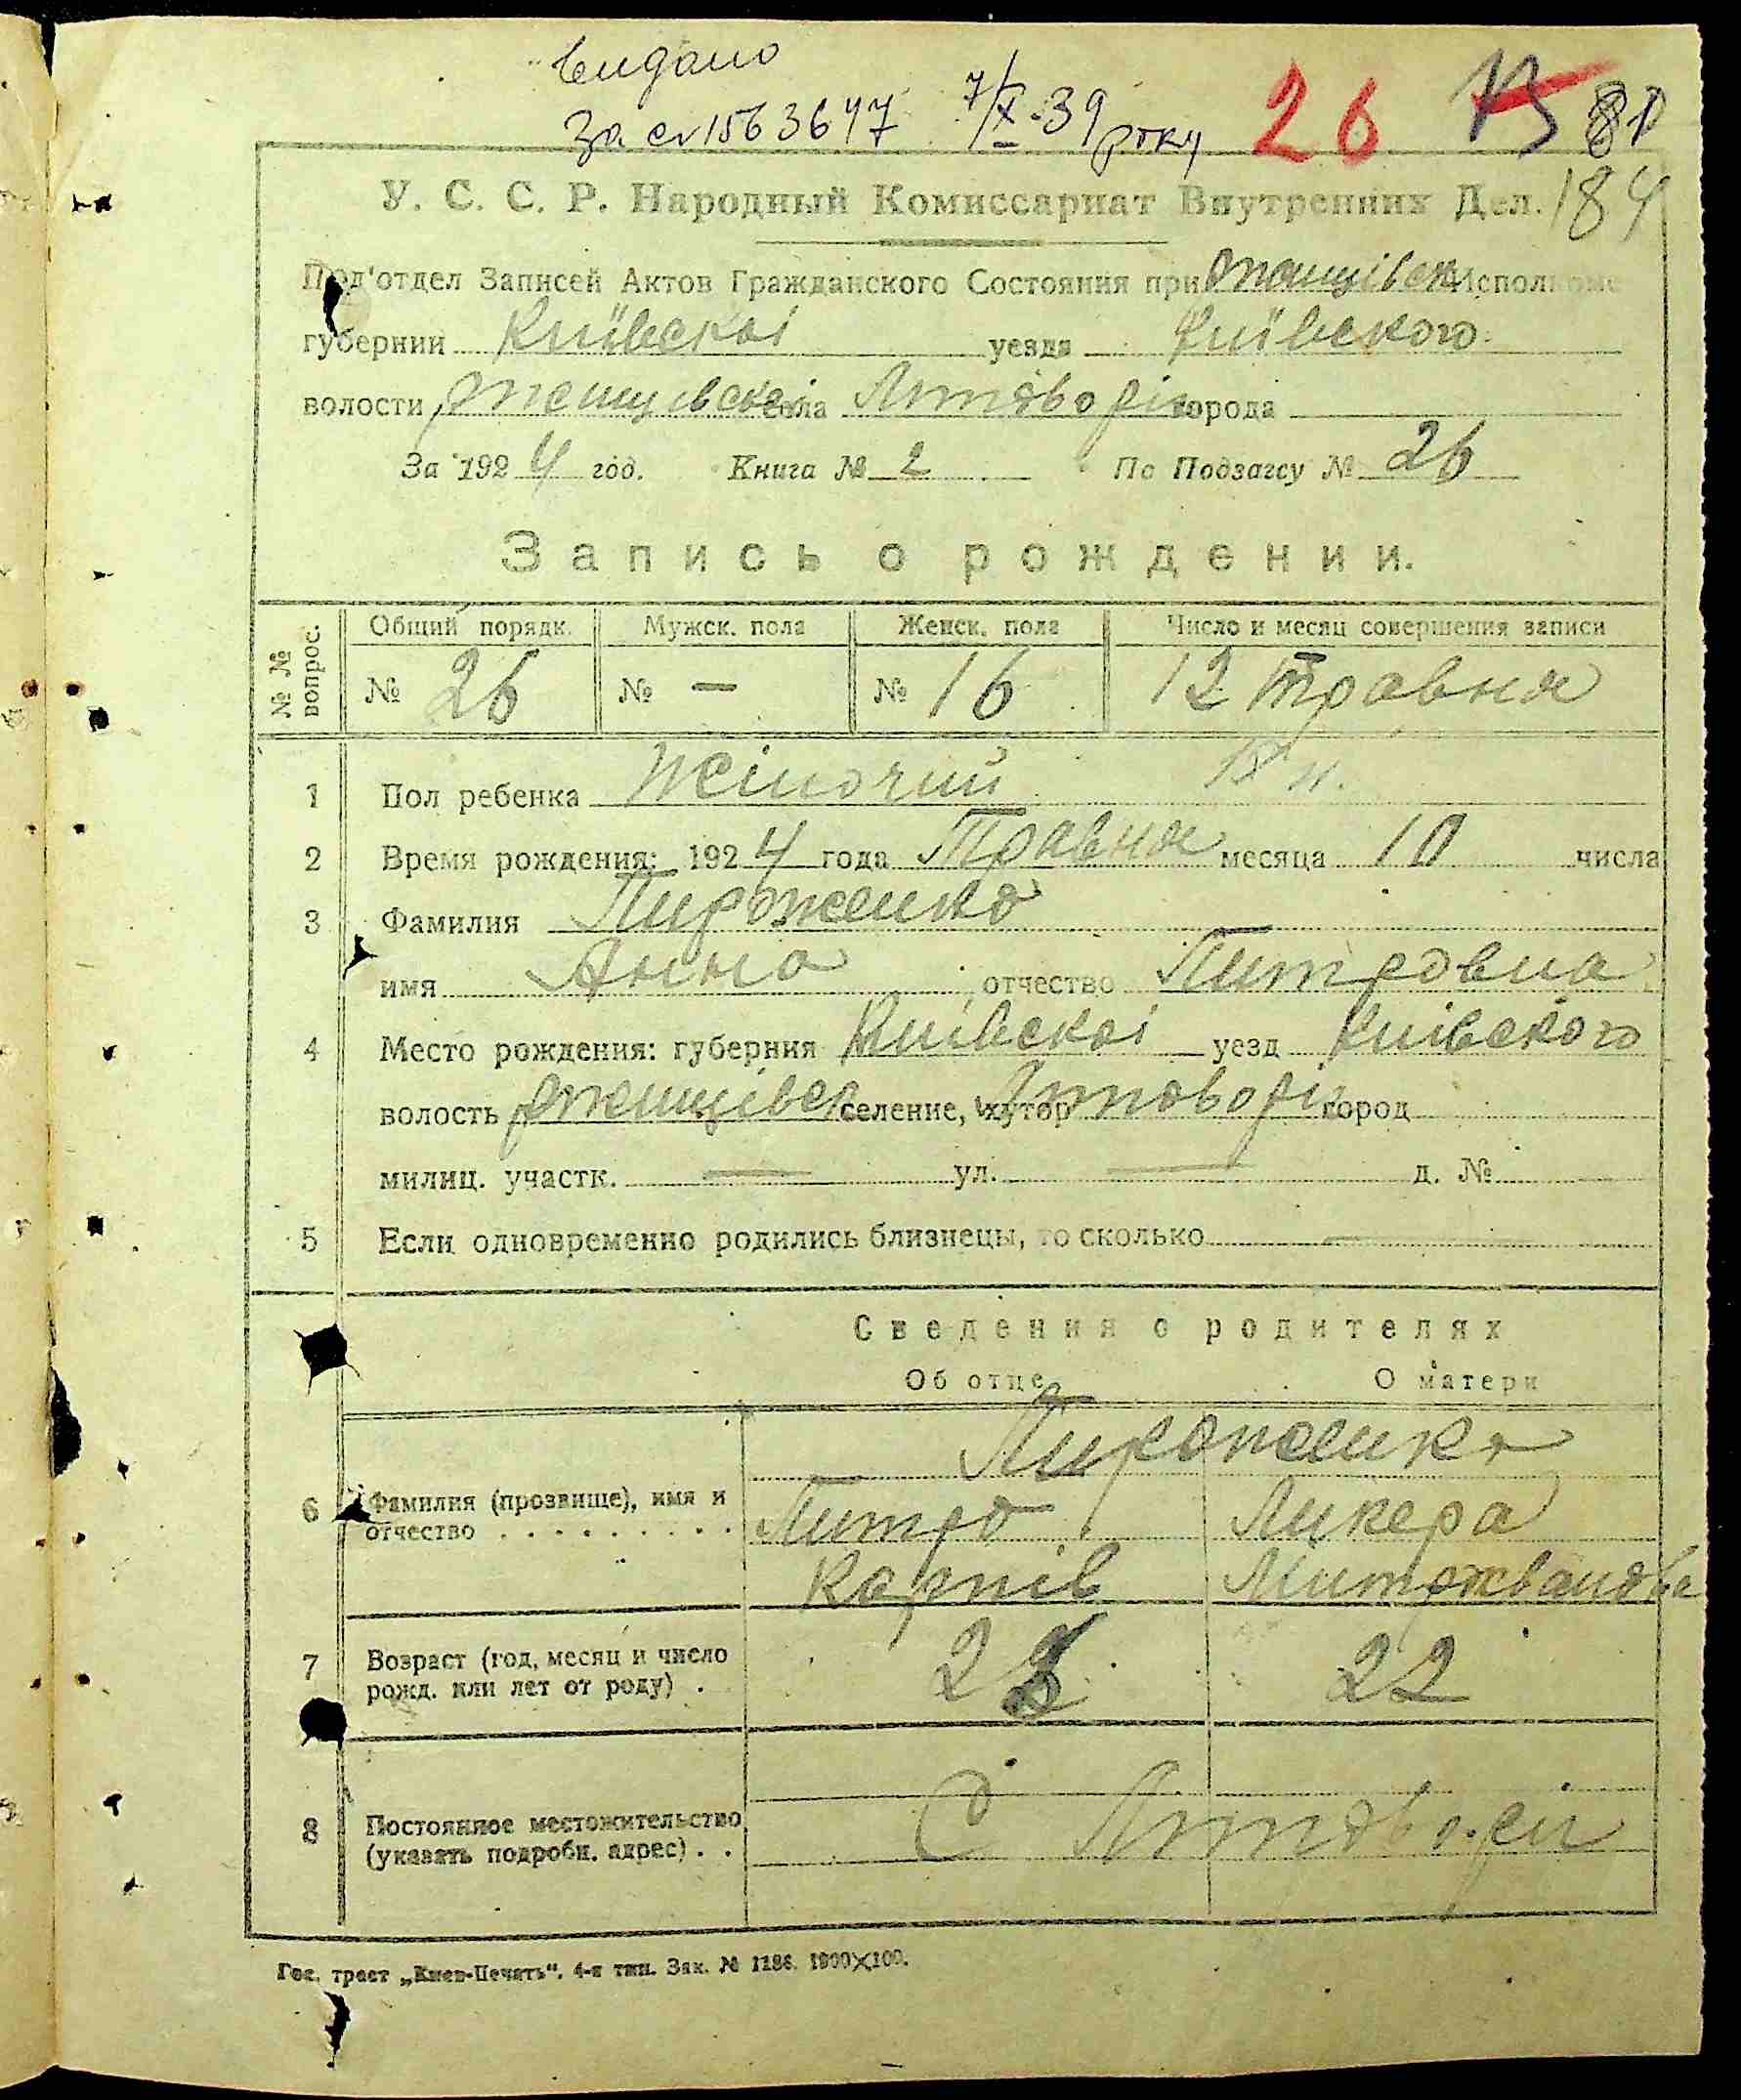 Видано
За № 1563647 7/X-39 року 26 81
У. С. С. Р. Народный Комиссариат Внутренних Дел. 184
Под'отдел Записей Актов Гражданского Состояния при Ржищівск Исполкоме
губернии Київскоі уезда Київского
волости Ржищівскоі села Літоворі города
За 1924 год. Книга № 2 По Подзагсу № 26
Запись о рождении.
№ № вопрос. Общий порядк. Мужск. пола Женск. пола Число и месяц совершения записи
№ 26 № — № 16 12 Травня
1 Пол ребенка Жіночий
2 Время рождения: 1924 года Травня месяца 10 числа
3 Фамилия Пироженко
имя Анна отчество Питровна
4 Место рождения: губерния Киівскоі уезд Киівского
волость Ржищівск селение, хутор город
милиц. участк. — ул. — д. №
5 Если одновременно родились близнецы, то сколько —
Сведения о родителях
Об отце О матери
Пироженко
6 Фамилия (прозвище), имя и Питро Ликера
отчество Карпів
7 Возраст (год, месяц и число 22
рожд. или лет от роду)
8 Постоянное местожительство С
(указать подробн. адрес)
Гос. трест „Киев-Печать“. 4-я тип. Зак. № 1186. 1900×100.